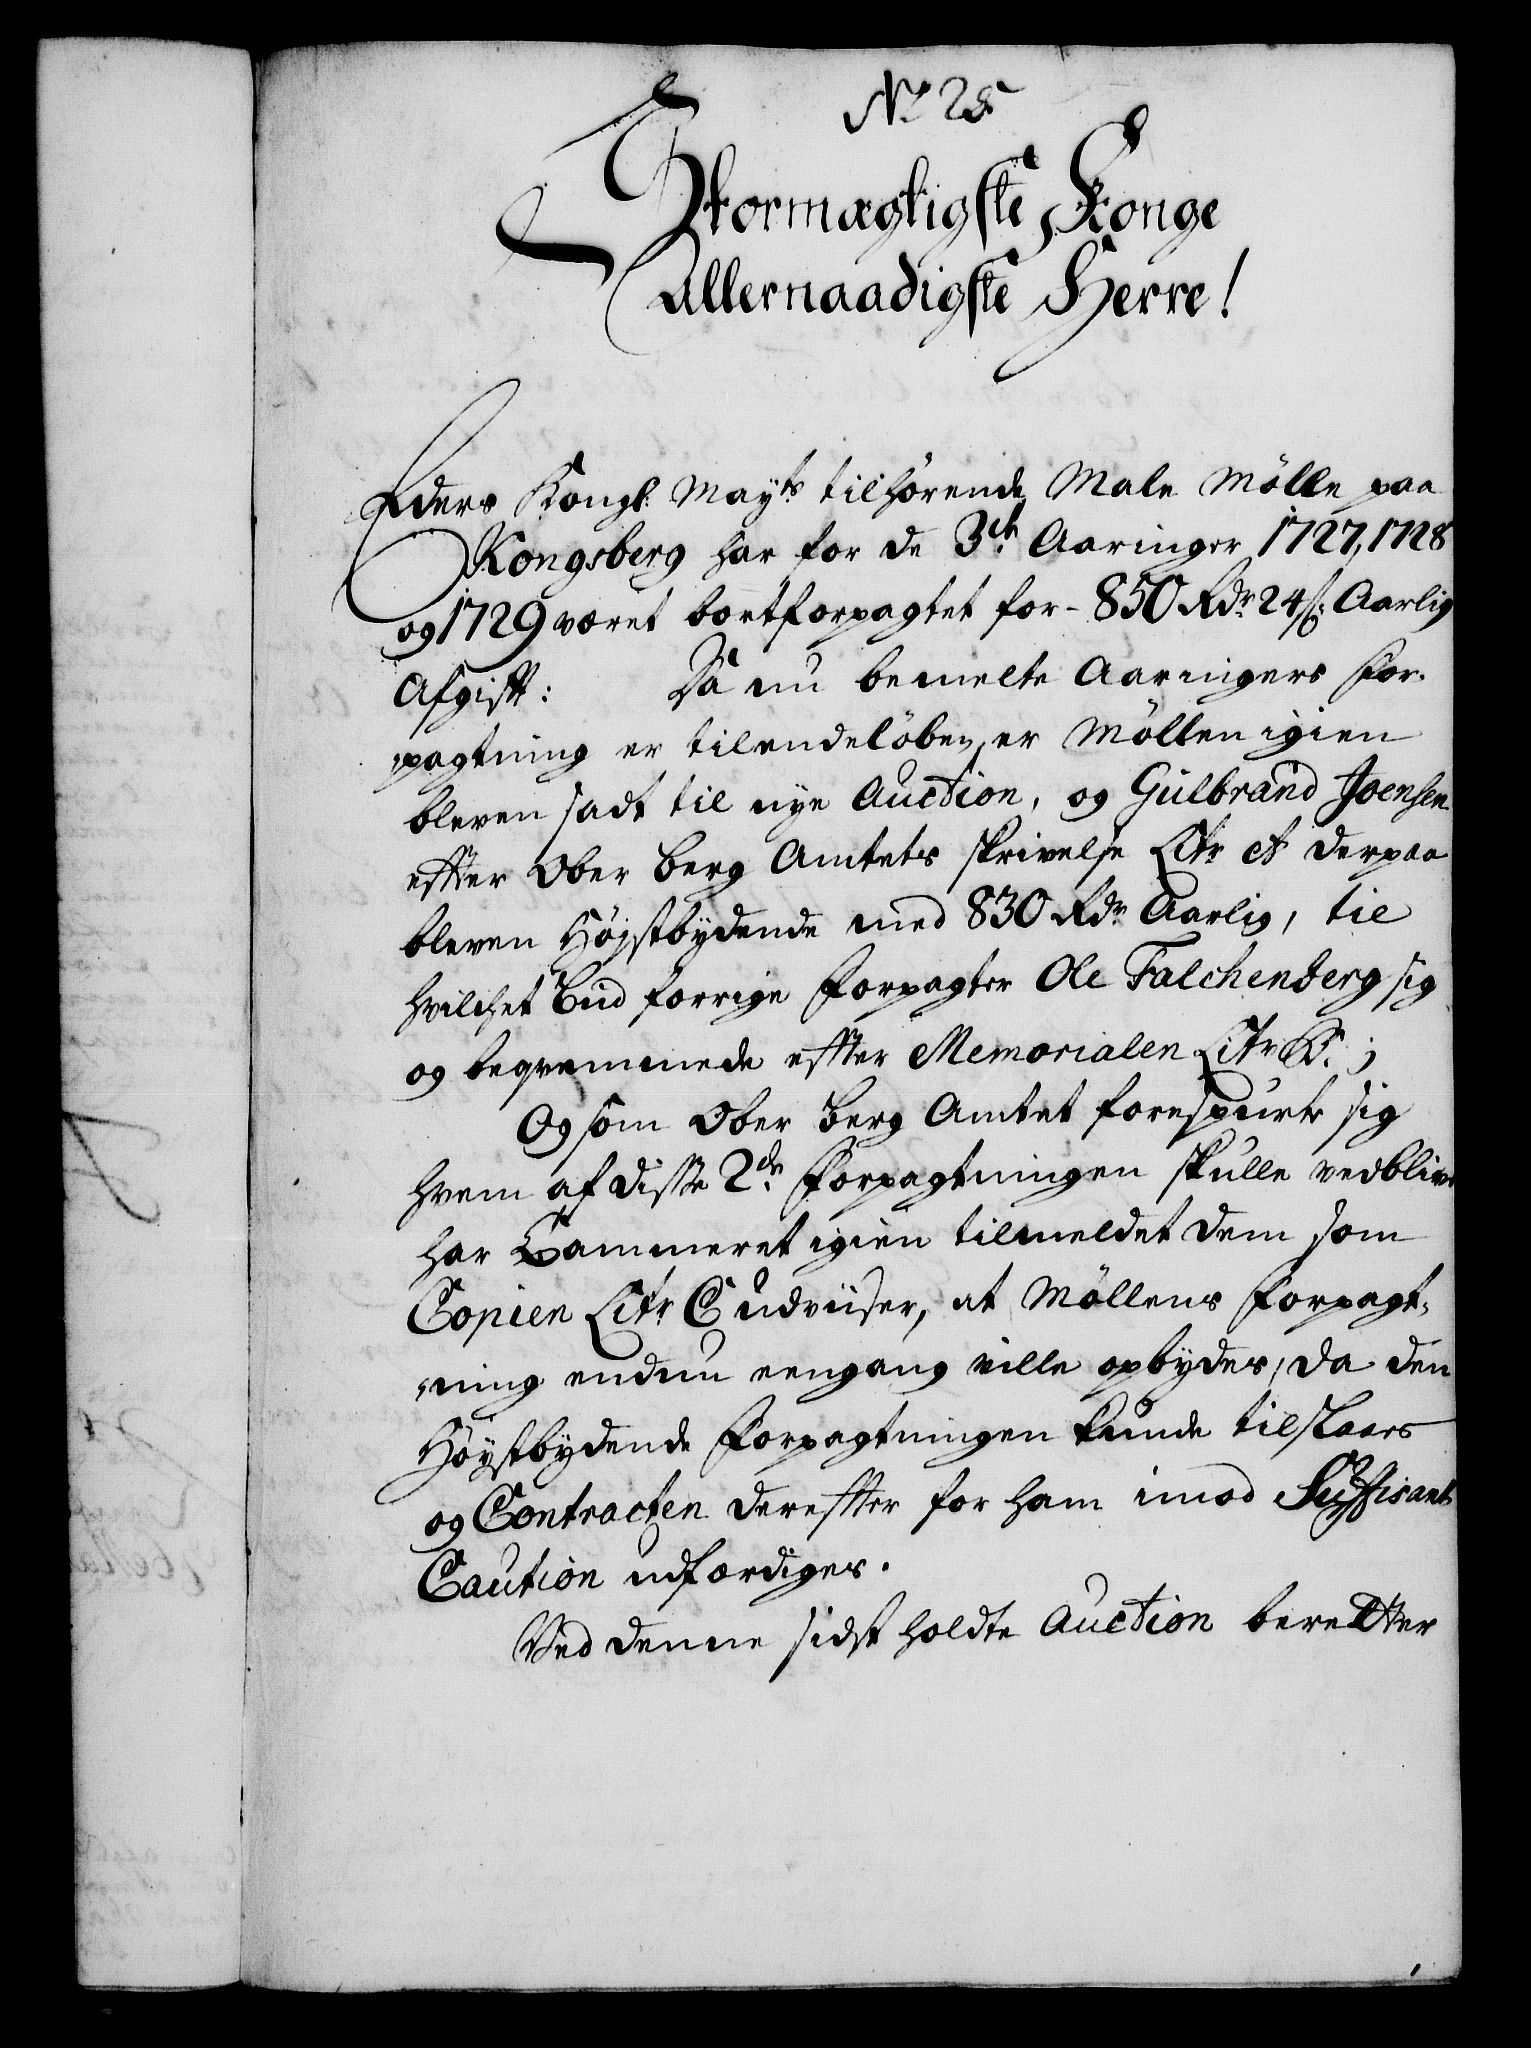 No 25
Stormægtigste Konge
Allernaadigste Herre!
Eders Kongl: Mayts tilhörende Male Mölle paa
Kongsberg har for de 3de Aaringer 1727, 1728
og 1729 været bortforpagtet for - 850 Rdr 24 s: Aarlig
Afgift: Da nu bemelte Aaringers For-
pagtning er tilendelöben, er Möllen igien
bleven sadt til nye Auction, og Gulbrand Joensen
effter Ober Berg Amtets skrivelse Litr A derpaa
bleven Höjstbydende med 830 Rdr Aarlig, til
hvilchet Bud forrige Forpagter Ole Falchenberg sig
og beqvemmede effter Memorialen Litr B. ;
Og som Ober Berg Amtet forespurte sig
hvem af disse 2de Forpagtningen skulle vedblive
har Cammeret igien tilmeldet dem som
Copien Litr C udviiser, at Möllens Forpagt-
ning endnu eengang ville opbydes, da den
Höystbydende Forpagtningen kunde tilslaaes
og Contracten dereffter for ham imod Suffisant
Caution udfærdiges.
Ved denne sidst holdte Auction beretter